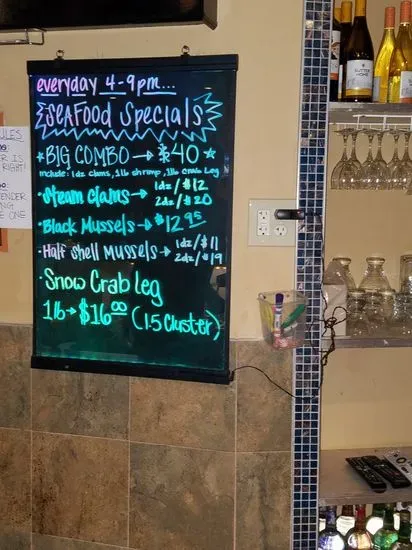 everyday 4-9pm...
SEAFOOD Specials
★BIG COMBO → $40 ★
Include: 1dz clams, 1lb shrimp, 1lb Crab Leg
• Steam clams → 1dz/$12
2dz/$20
• Black Mussels → $12.95
• Half shell Mussels → 1dz/$11
2dz/$19
• Snow Crab Leg
1lb → $16.00 (1.5 Cluster)
RULES
SUTTER HOME